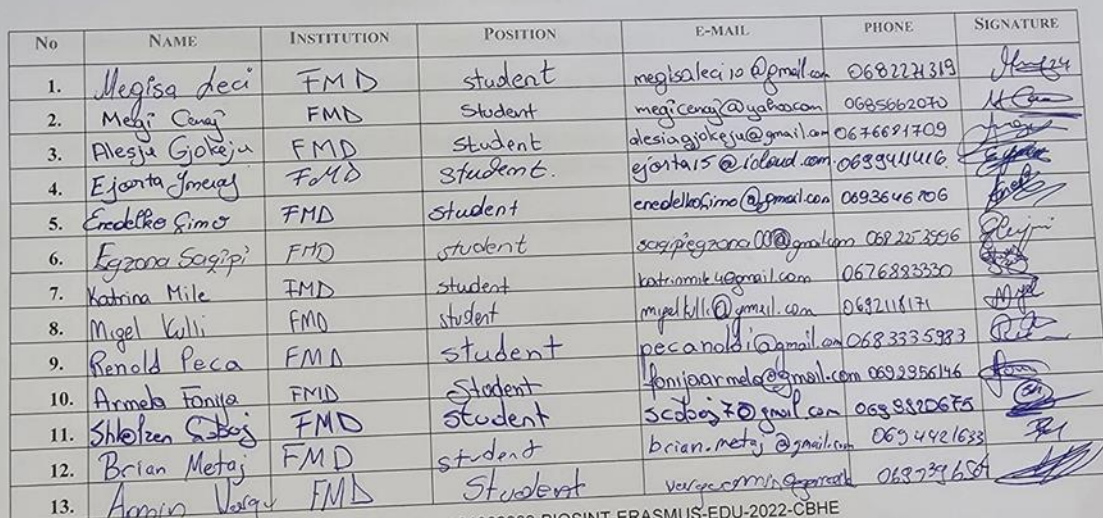 No NAME INSTITUTION POSITION E-MAIL PHONE SIGNATURE
1. Megisa Leci FMD student megisaleci10@gmail.com 0682221319
2. Megi Cenaj FMD Student megicenaj@yahoo.com 0685662070
3. Alesja Gjokeja FMD Student alesiagjokeja@gmail.com 0676681709
4. Ejonta Ymeraj FMD Student. ejonta15@icloud.com 0699411416
5. Enedelko Simo FMD student enedelkosimo@gmail.com 0693646706
6. Egzona Sagipi FMD student sagipiegzona00@gmail.com 0682253596
7. Katrina Mile FMD student 0676883330
8. Migel Kulli FMD student migelkulli@gmail.com 0692118171
9. Renold Peca FMD student pecanoldi@gmail.com 0683335983
10. Armela Fonija FMD Student fonijaarmela@gmail.com 0692956146
11. FMD Student 0698820675
12. Brian Metaj FMD student brian.metaj@gmail.com 0694421633
13. Armin Vargu FMD Student
BIOSINT ERASMUS-EDU-2022-CBHE